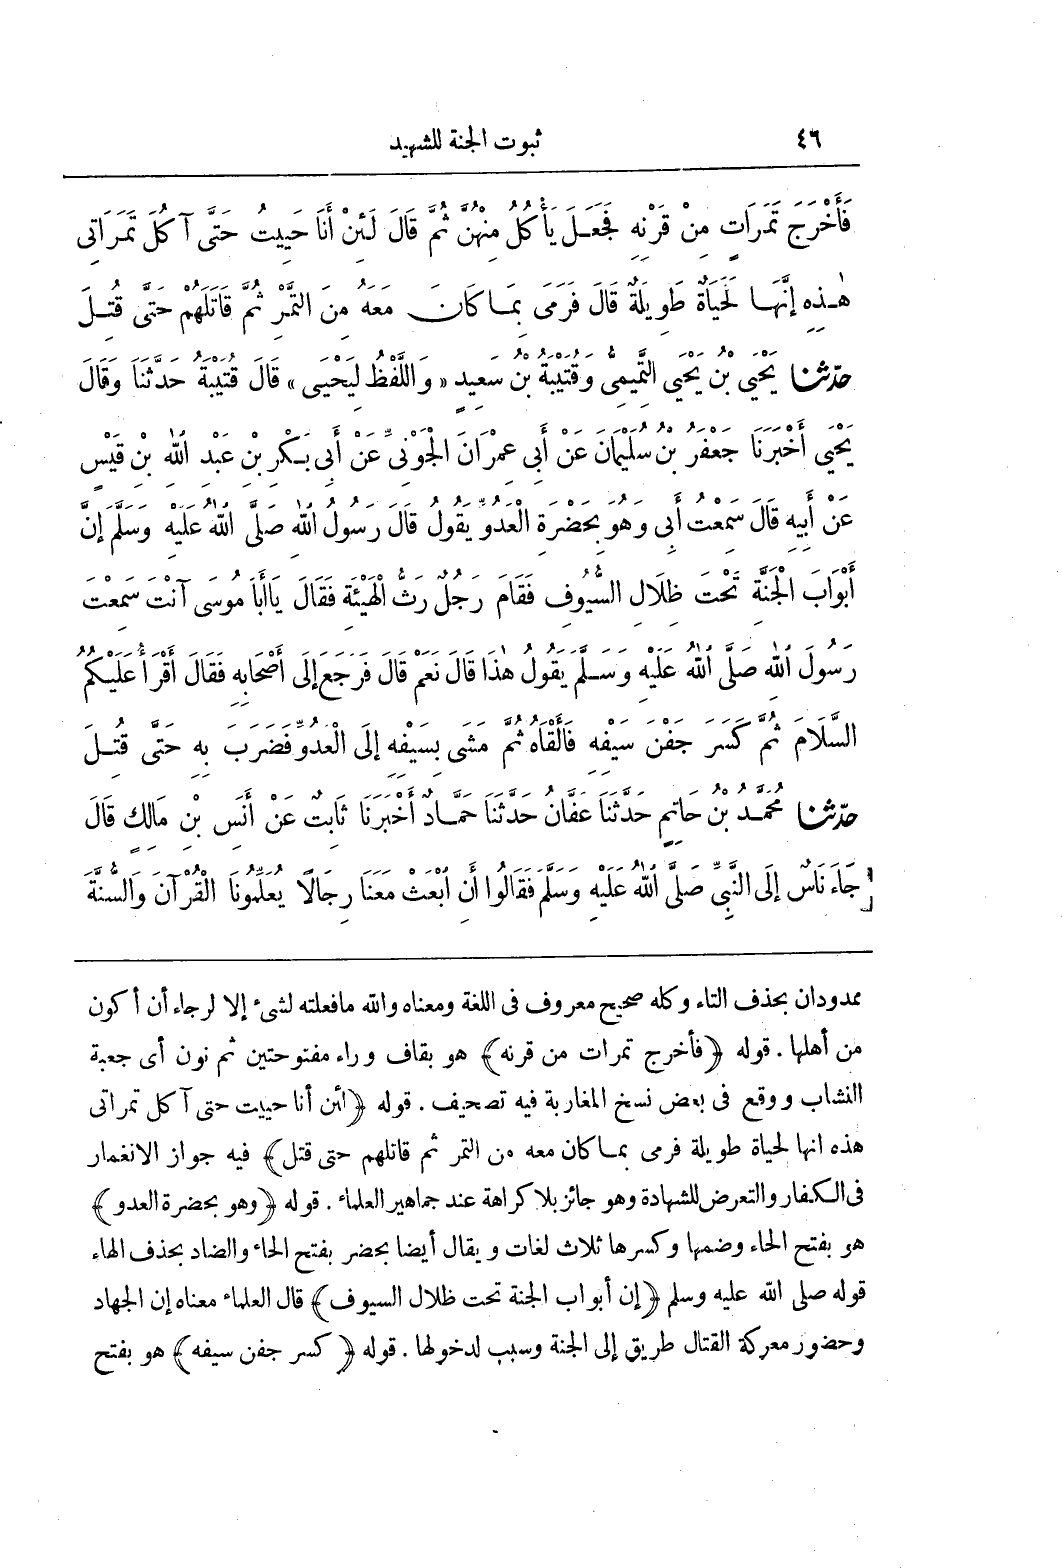 ٤٦ ثبوت الجنة للشهيد
فَأَخْرَجَ تَمَرَاتٍ مِنْ قَرَنِهِ فَجَعَلَ يَأْكُلُ مِنْهُنَّ ثُمَّ قَالَ لَئِنْ أَنَا حَيِيتُ حَتَّى آكُلَ تَمَرَاتِى
هٰذِهِ إِنَّهَا لَحَيَاةٌ طَوِيلَةٌ قَالَ فَرَمَى بِمَا كَانَ مَعَهُ مِنَ التَّمْرِ ثُمَّ قَاتَلَهُمْ حَتَّى قُتِلَ
حدّثنا يَحْيَى بْنُ يَحْيَى التَّمِيمِىُّ وَقُتَيْبَةُ بْنُ سَعِيدٍ «وَاللَّفْظُ لِيَحْيَى» قَالَ قُتَيْبَةُ حَدَّثَنَا وَقَالَ
يَحْيَى أَخْبَرَنَا جَعْفَرُ بْنُ سُلَيْمَانَ عَنْ أَبِى عِمْرَانَ الْجَوْنِىِّ عَنْ أَبِى بَكْرِ بْنِ عَبْدِ اللهِ بْنِ قَيْسٍ
عَنْ أَبِيهِ قَالَ سَمِعْتُ أَبِى وَهُوَ بِحَضْرَةِ الْعَدُوِّ يَقُولُ قَالَ رَسُولُ اللهِ صَلَّى اللهُ عَلَيْهِ وَسَلَّمَ إِنَّ
أَبْوَابَ الْجَنَّةِ تَحْتَ ظِلَالِ السُّيُوفِ فَقَامَ رَجُلٌ رَثُّ الْهَيْئَةِ فَقَالَ يَاأَبَا مُوسَى آنْتَ سَمِعْتَ
رَسُولَ اللهِ صَلَّى اللهُ عَلَيْهِ وَسَلَّمَ يَقُولُ هٰذَا قَالَ نَعَمْ قَالَ فَرَجَعَ إِلَى أَصْحَابِهِ فَقَالَ أَقْرَأُ عَلَيْكُمُ
السَّلَامَ ثُمَّ كَسَرَ جَفْنَ سَيْفِهِ فَأَلْقَاهُ ثُمَّ مَشَى بِسَيْفِهِ إِلَى الْعَدُوِّ فَضَرَبَ بِهِ حَتَّى قُتِلَ
حدّثنا مُحَمَّدُ بْنُ حَاتِمٍ حَدَّثَنَا عَفَّانُ حَدَّثَنَا حَمَّادٌ أَخْبَرَنَا ثَابِتٌ عَنْ أَنَسِ بْنِ مَالِكٍ قَالَ
جَاءَ نَاسٌ إِلَى النَّبِىِّ صَلَّى اللهُ عَلَيْهِ وَسَلَّمَ فَقَالُوا أَنِ ابْعَثْ مَعَنَا رِجَالًا يُعَلِّمُونَا الْقُرْآنَ وَالسُّنَّةَ
ممدودان بحذف التاء وكله صحيح معروف فى اللغة ومعناه والله مافعلته لشىء إلا لرجاء أن أكون
من أهلها . قوله ﴿فأخرج تمرات من قرنه﴾ هو بقاف وراء مفتوحتين ثم نون أى جعبة
النشاب ووقع فى بعض نسخ المغاربة فيه تصحيف . قوله ﴿لئن أنا حييت حتى آكل تمراتى
هذه انها لحياة طويلة فرمى بما كان معه من التمر ثم قاتلهم حتى قتل﴾ فيه جواز الانغمار
فى الكفار والتعرض للشهادة وهو جائز بلا كراهة عند جماهير العلماء . قوله ﴿وهو بحضرة العدو﴾
هو بفتح الحاء وضمها وكسرها ثلاث لغات ويقال أيضا بحضر بفتح الحاء والضاد بحذف الهاء
قوله صلى الله عليه وسلم ﴿إن أبواب الجنة تحت ظلال السيوف﴾ قال العلماء معناه إن الجهاد
وحضور معركة القتال طريق إلى الجنة وسبب لدخولها . قوله ﴿كسر جفن سيفه﴾ هو بفتح